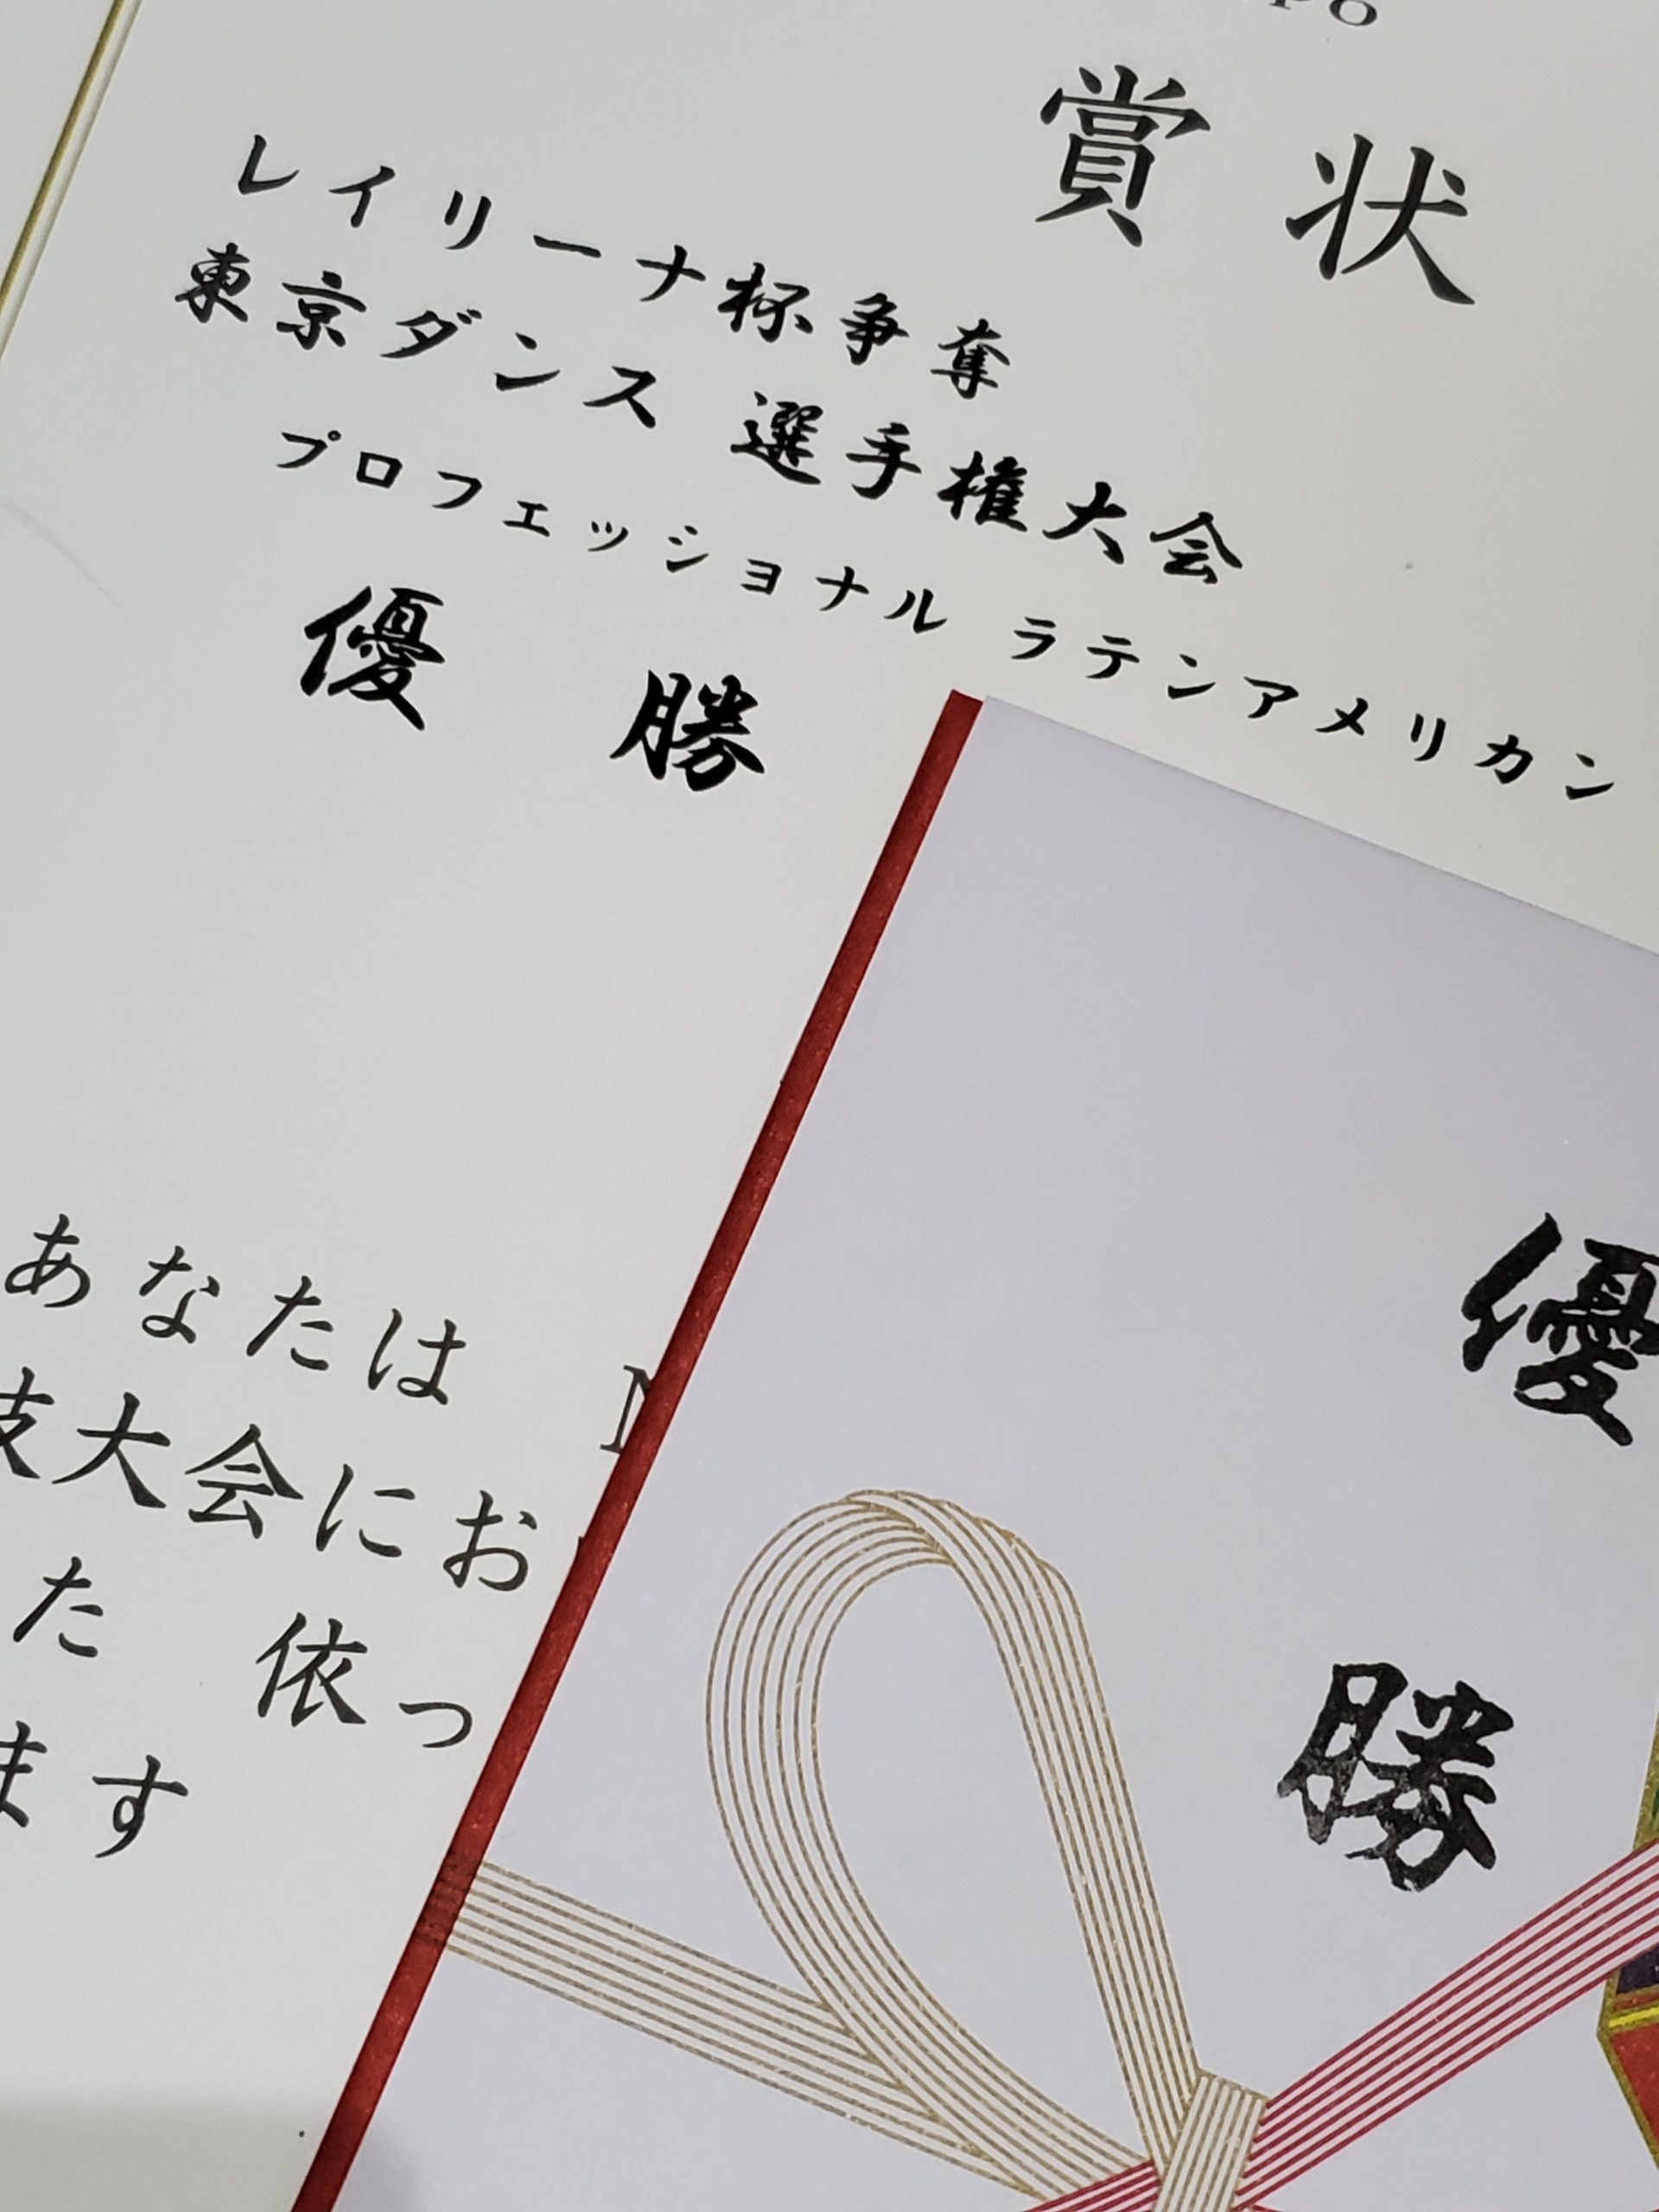 賞状
レイリーナ杯争奪
東京ダンス 選手権大会
プロフェッショナル ラテンアメリカン
優勝
あなたは
技大会にお
た 依っ
ます
優勝